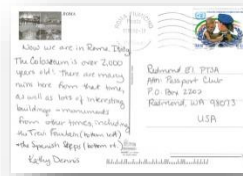 ROMA
Now we are in Rome, Italy
The Colosseum is over 2,000
years old! There are many
ruins here from that time,
as well as lots of interesting
buildings + monuments
from other times, including
the Trevi Fountain (bottom left)
+ the Spanish Steps (bottom rt.)
Kathy Dennis
Redmond El. PTSA
Attn: Passport Club
P.O. Box 2202
Redmond, WA 98073
USA